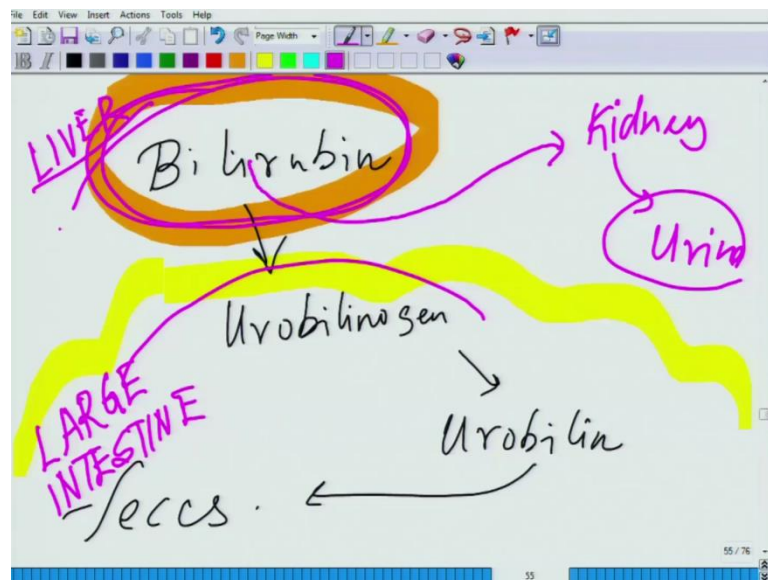 File Edit View Insert Actions Tools Help
Page Width
B I
LIVER
Bilirubin
Kidney
Urine
Urobilinogen
LARGE
INTESTINE
Urobilin
feces.
55 / 76
55